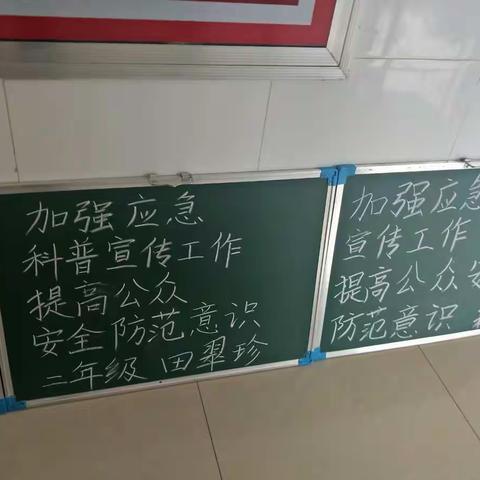 加强应急
科普宣传工作
提高公众
安全防范意识
二年级 田翠珍
加强应急
宣传工作
提高公众安
防范意识